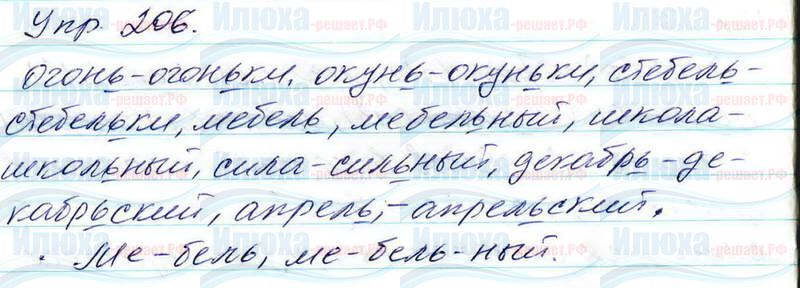 Упр. 206.
огонь-огоньки, окунь-окуньки, стебель-
стебельки, мебель, мебельный, школа-
школьный, сила-сильный, декабрь-де-
кабрьский, апрель,-апрельский.
Ме-бель, ме-бель-ный.